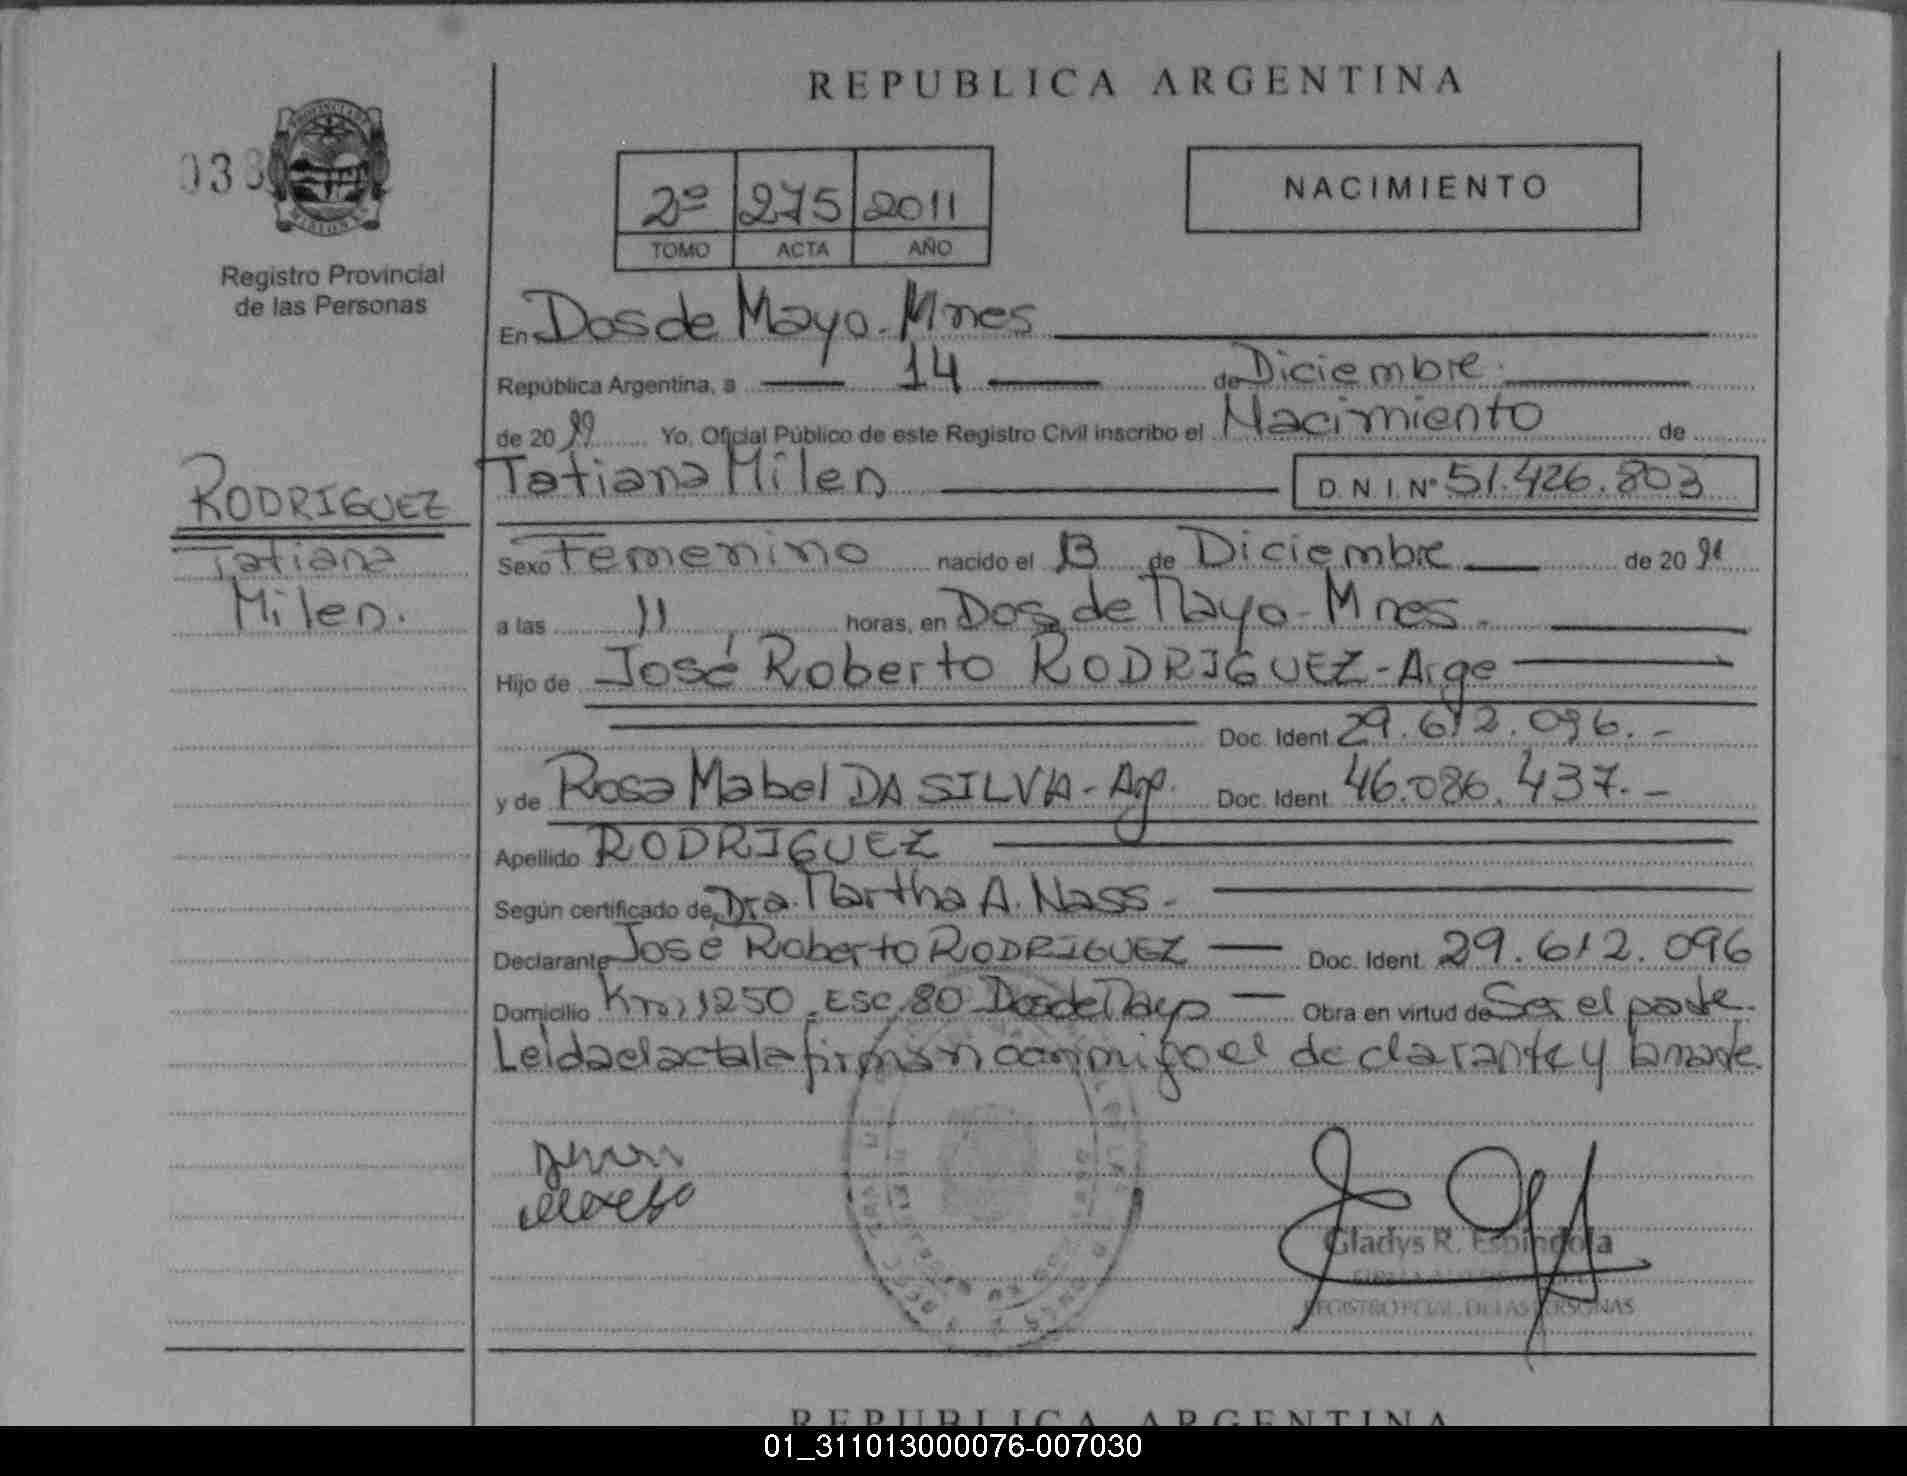 REPUBLICA ARGENTINA
038
2º 275 2011
TOMO ACTA AÑO
NACIMIENTO
Registro Provincial
de las Personas
En Dos de Mayo. Mnes
República Argentina, a 14 de Diciembre.
de 20 11 Yo, Oficial Público de este Registro Civil inscribo el Nacimiento de
RODRIGUEZ
Tatiana
Milen.
Tatiana Milen D.N.I.Nº 51.426.803
Sexo Femenino nacido el 13 de Diciembre de 20 11
a las 11 horas, en Dos de Mayo - Mnes.
Hijo de José Roberto RODRIGUEZ - Arge
Doc. Ident. 29.612.096.-
y de Rosa Mabel DA SILVA - Arg. Doc. Ident. 46.086.437.-
Apellido RODRIGUEZ
Según certificado de Dra. Martha A. Nass -
Declarante José Roberto RODRIGUEZ Doc. Ident. 29.612.096
Domicilio Km, 1250. Esc. 80 Dos de Mayo Obra en virtud de Ser el padre.
Leida el acta la firman conmigo el declarante y la madre.
Gladys R. Espindola
REGISTRO PCIAL. DE LAS PERSONAS
REPUBLICA ARGENTINA
01_311013000076-007030